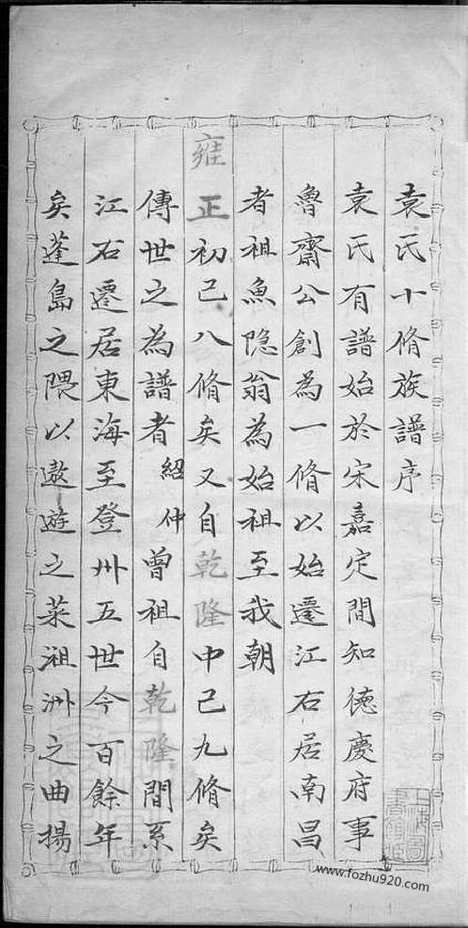 袁氏十脩族譜序
袁氏有譜始於宋嘉定間知德慶府事
魯齋公創為一脩以始遷江右居南昌
者祖魚隐翁為始祖至我朝
雍正初己八脩矣又自乾隆中己九脩矣
傳世之為譜者紹仲曾祖自乾隆間系
江右遷居東海至登州五世今百餘年
矣蓬島之隈以遨遊之菜沮洲之曲揚
www.fozhu920.com